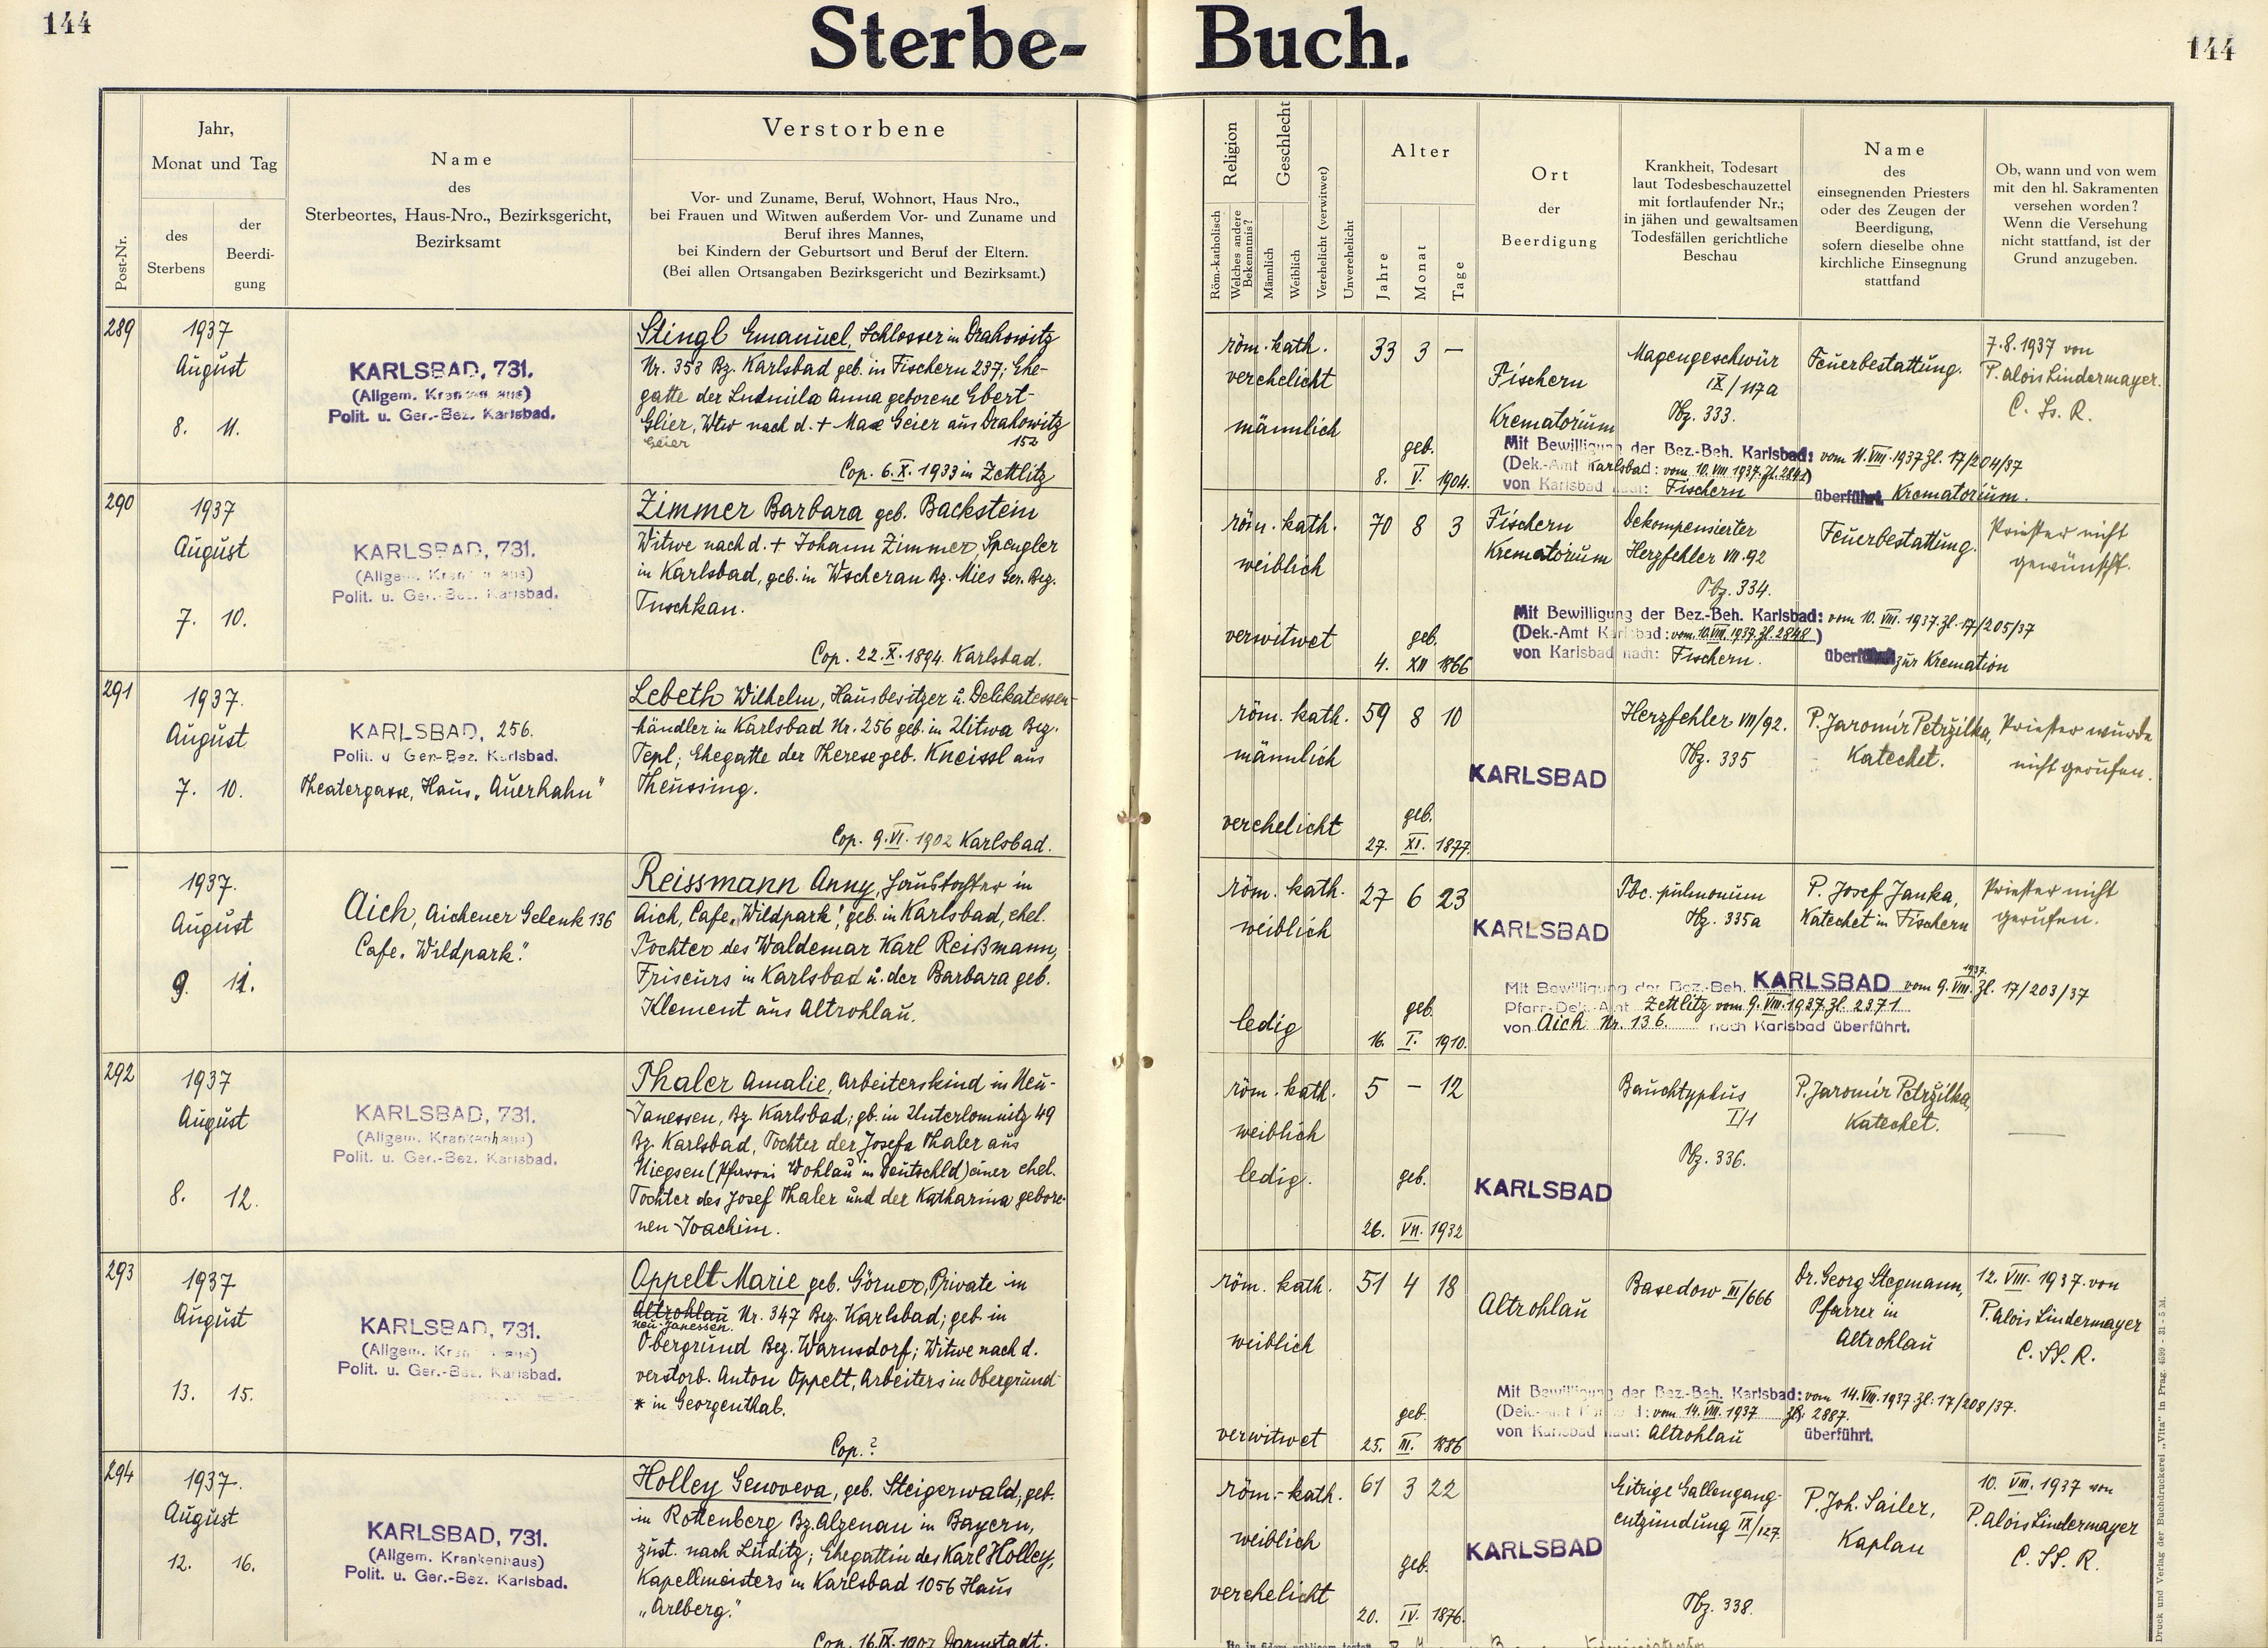 144
Sterbe-
Buch.
144
Post-Nr.
Jahr,
Monat und Tag
des
Sterbens
der
Beerdi-
gung
Name
des
Sterbeortes, Haus-Nro., Bezirksgericht,
Bezirksamt
Verstorbene
Vor- und Zuname, Beruf, Wohnort, Haus Nro.,
bei Frauen und Witwen außerdem Vor- und Zuname und
Beruf ihres Mannes,
bei Kindern der Geburtsort und Beruf der Eltern.
(Bei allen Ortsangaben Bezirksgericht und Bezirksamt.)
Religion
Röm.-katholisch
Welches andere
Bekenntnis?
Geschlecht
Männlich
Weiblich
Verehelicht (verwitwet)
Unverehelicht
Alter
Jahre
Monat
Tage
Ort
der
Beerdigung
Krankheit, Todesart
laut Todesbeschauzettel
mit fortlaufender Nr.;
in jähen und gewaltsamen
Todesfällen gerichtliche
Beschau
Name
des
einsegnenden Priesters
oder des Zeugen der
Beerdigung,
sofern dieselbe ohne
kirchliche Einsegnung
stattfand
Ob, wann und von wem
mit den hl. Sakramenten
versehen worden?
Wenn die Versehung
nicht stattfand, ist der
Grund anzugeben.
289
1937
August
8. 11.
KARLSBAD, 731.
(Allgem. Krankenhaus)
Polit. u. Ger.-Bez. Karlsbad.
Stingl Emanuel, Schlosser in Drahowitz
Nr. 353 Bz. Karlsbad geb. in Fischern 237; Ehe-
gatte der Ludmila Anna geborene Ebert-
Glier, Wtw nach d. + Max Geier aus Drahowitz
Geier 152
Cop. 6.X.1933 in Zettlitz
röm. kath.
verehelicht
männlich
33 3 —
geb.
8. V. 1904.
Fischern
Krematorium
Magengeschwür
IX/117a
Tbz. 333.
Feuerbestattung.
7.8.1937 von
P. Alois Lindermayer.
C. Ss. R.
Mit Bewilligung der Bez.-Beh. Karlsbad: vom 11.VIII.1937 Zl. 17/204/37
(Dek.-Amt Karlsbad: vom 10.VIII 1937. Zl. 2841)
von Karlsbad nach: Fischern überführt. Krematorium.
290
1937
August
7. 10.
KARLSBAD, 731.
(Allgem. Krankenhaus)
Polit. u. Ger.-Bez. Karlsbad.
Zimmer Barbara geb. Backstein
Witwe nach d. + Johann Zimmer, Spengler
in Karlsbad, geb. in Wscherau Bz. Mies Ger. Bez.
Tuschkau.
Cop. 22.X.1894. Karlsbad.
röm. kath.
weiblich
verwitwet
70 8 3
geb.
4. XII 1866
Fischern
Krematorium
Dekompensierter
Herzfehler VII.92
Tbz. 334.
Feuerbestattung.
Priester nicht
gewünscht.
Mit Bewilligung der Bez.-Beh. Karlsbad: vom 10. VIII. 1937. Zl. 17/205/37
(Dek.-Amt Karlsbad: vom 10.VIII.1937. Zl. 2848)
von Karlsbad nach: Fischern. überführt zur Kremation
291
1937.
August
7. 10.
KARLSBAD, 256.
Polit. u Ger-Bez. Karlsbad.
Theatergasse, Haus „Auerhahn"
Lebeth Wilhelm, Hausbesitzer u. Delikatessen-
händler in Karlsbad Nr. 256 geb. in Uitwa Bez.
Tepl; Ehegatte der Therese geb. Kneissl aus
Theussing.
Cop. 9.VI.1902 Karlsbad.
röm. kath.
männlich
verehelicht
59 8 10
geb.
27. XI. 1877.
KARLSBAD
Herzfehler VII/92.
Tbz. 335
P. Jaromír Petržilka,
Katechet.
Priester wurde
nicht gerufen.
—
1937.
August
9. 11.
Aich, Aichener Gelenk 136
Cafe „Wildpark".
Reissmann Anny, Haustochter in
Aich, Cafe „Wildpark", geb. in Karlsbad, ehel.
Tochter des Waldemar Karl Reißmann,
Friseurs in Karlsbad u. der Barbara geb.
Klement aus Altrohlau.
röm. kath.
weiblich
ledig
27 6 23
geb.
16. I. 1910.
KARLSBAD
Tbc. pulmonum
Tbz. 335a
P. Josef Janka,
Katechet in Fischern
Priester nicht
gerufen.
Mit Bewilligung der Bez.-Beh. KARLSBAD vom 9.VIII.1937. Zl. 17/203/37
Pfarr-Dek.-Amt Zettlitz vom 9.VIII.1937. Zl. 2371
von Aich Nr. 136. nach Karlsbad überführt.
292
1937
August
8. 12.
KARLSBAD, 731.
(Allgem. Krankenhaus)
Polit. u. Ger.-Bez. Karlsbad.
Thaler Amalie, Arbeiterskind in Neu-
Janessen, Bz. Karlsbad; gb. in Unterlomnitz 49
Bz. Karlsbad, Tochter der Josefa Thaler aus
Niegsen (Pfarrei Wohlau in Deutschld) einer ehel.
Tochter des Josef Thaler und der Katharina gebore-
nen Joachim.
röm. kath.
weiblich
ledig.
5 — 12
geb.
26. VII. 1932
KARLSBAD
Bauchtyphus
I/1
Tbz. 336.
P. Jaromír Petržilka,
Katechet.
—
293
1937
August
13. 15.
KARLSBAD, 731.
(Allgem. Krankenhaus)
Polit. u. Ger.-Bez. Karlsbad.
Oppelt Marie geb. Görner, Private in
Altrohlau Nr. 347 Bez. Karlsbad; geb. in
Neu-Janessen.
Obergrund Bez. Warnsdorf; Witwe nach d.
verstorb. Anton Oppelt, Arbeiters in Obergrund
* in Georgenthal.
Cop.?
röm. kath.
weiblich
verwitwet
51 4 18
geb.
25. III. 1886
Altrohlau
Basedow III/666
Dr. Georg Stegmann,
Pfarrer in
Altrohlau
12. VIII. 1937 von
P. Alois Lindermayer
C. SS. R.
Mit Bewilligung der Bez.-Beh. Karlsbad: vom 14.VIII.1937 Zl: 17/208/37.
(Dek.-Amt Karlsbad: vom 14.VIII.1937 Zl: 2887.
von Karlsbad nach: Altrohlau überführt.
294
1937.
August
12. 16.
KARLSBAD, 731.
(Allgem. Krankenhaus)
Polit. u. Ger.-Bez. Karlsbad.
Holley Genoveva, geb. Steigerwald; geb.
in Rottenberg Bz. Alzenau in Bayern,
zust. nach Luditz; Ehegattin des Karl Holley,
Kapellmeisters in Karlsbad 1056 Haus
„Arlberg."
Cop. 16.IX.1907 Darmstadt.
röm.-kath.
weiblich
verehelicht
61 3 22
geb.
20. IV. 1876.
KARLSBAD
Eitrige Gallengang-
entzündung IX/127.
Tbz. 338.
P. Joh. Sailer,
Kaplan
10. VIII. 1937 von
P. Alois Lindermayer
C. SS. R.
Druck und Verlag der Buchdruckerei „Vita" in Prag. 4599 - 31 - 5 M.